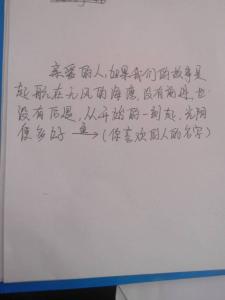 亲爱的人,如果我们的故事是
起航在无风的海港,没有前进,也
没有后退,从开始的一刻起,光阴
便多好 → (你喜欢的人的名字)